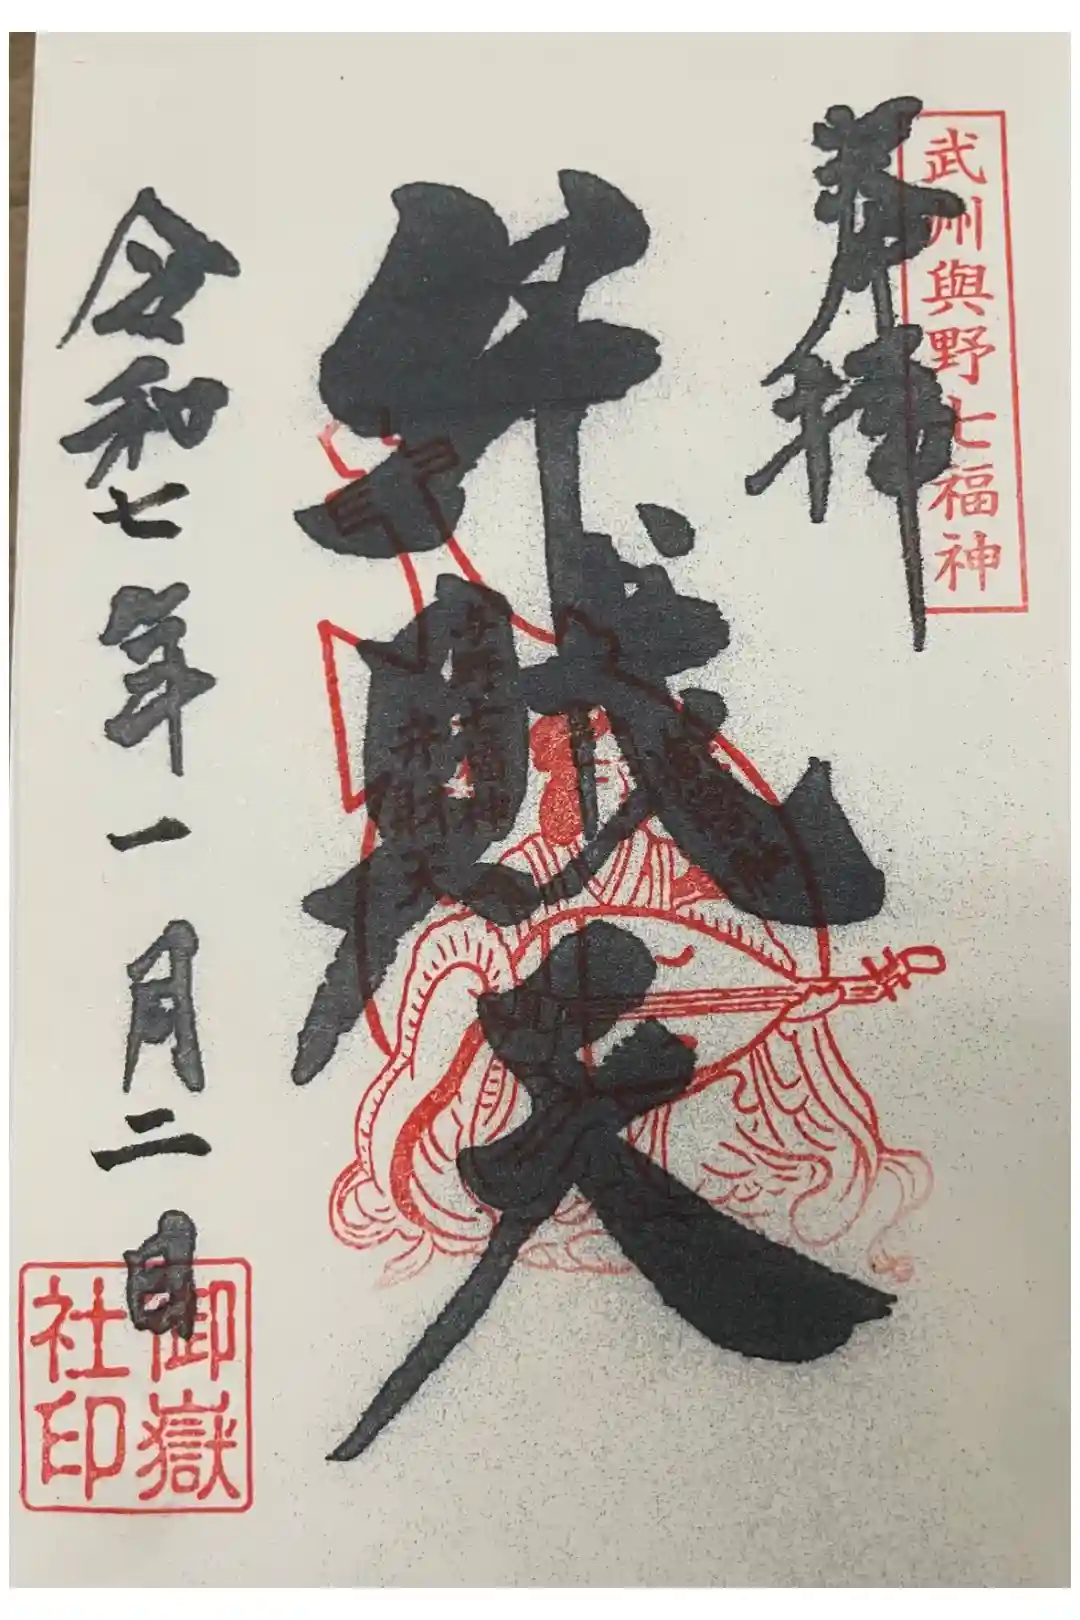 武州與野七福神
奉拝
弁財天
弁財天
令和七年一月二日
御嶽
社印